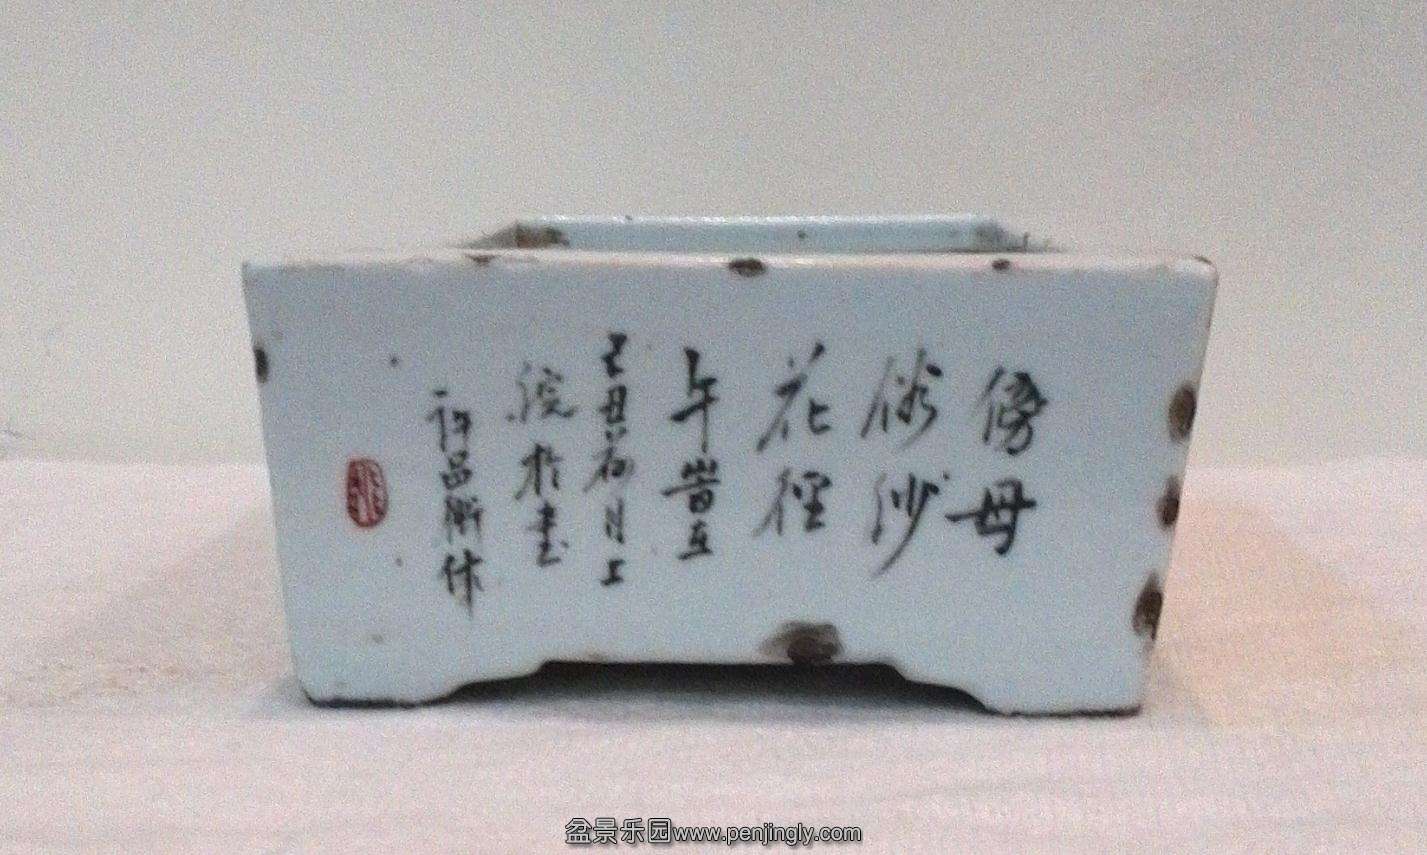 傍母
沙
花徑
午峕
己丑荷月上
浣於
許品衡作
盆景乐园www.penjingly.com